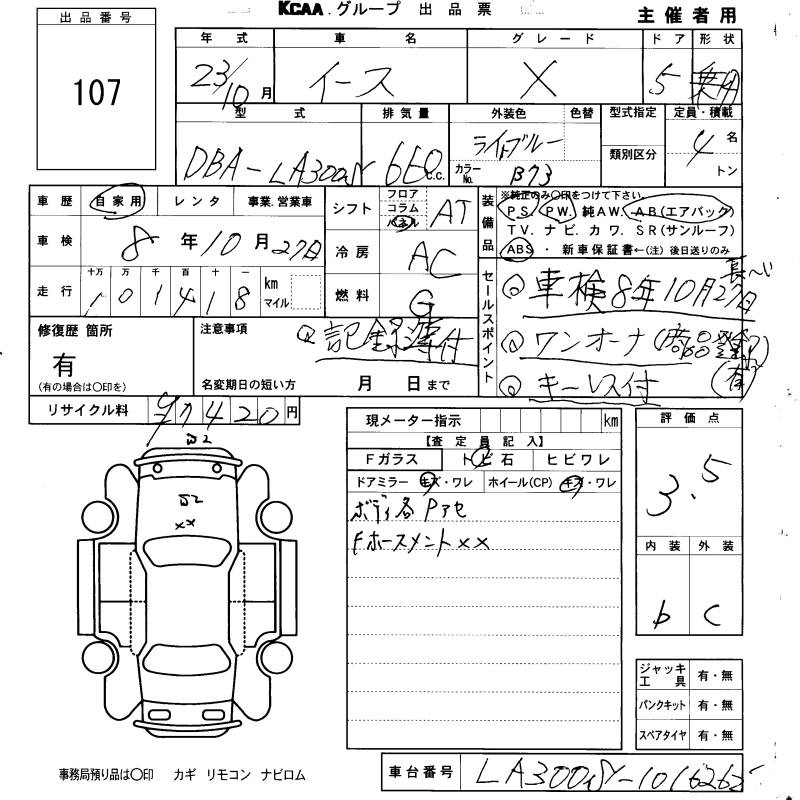 KCAA.グループ 出品票
主催者用
出品番号
107
年式 車名 グレード ドア 形状
23/10月 イース X 5 乗用
型式 排気量 外装色 色替 型式指定 定員・積載
類別区分
DBA-LA300S 660c.c. ライトブルー 4名
カラーNo. B73 トン
車歴 自家用 レンタ 事業.営業車
車検 8年10月27日
走行 十万 万 千 百 十 一
101418 km マイル
シフト フロア コラム パネル AT
冷房 AC
燃料 G
装備品
※純正のみ〇印をつけて下さい。
PS. PW. 純AW. AB(エアバッグ)
TV. ナビ. カワ. SR(サンルーフ)
ABS・新車保証書←(注)後日送りのみ
セールスポイント
車検8年10月27日 長〜い
ワンオーナ
(有)
キーレス付
修復歴 箇所
有
(有の場合は〇印を)
注意事項
記録簿付
名変期日の短い方 月 日まで
リサイクル料 97420円
現メーター指示 km
【査定員記入】
Fガラス トビ石 ヒビワレ
ドアミラー キズ・ワレ ホイール(CP) キズ・ワレ
ボディ各Pアセ
Fホースメント××
評価点
3.5
内装 外装
b c
ジャッキ工具 有・無
パンクキット 有・無
スペアタイヤ 有・無
××
事務局預り品は〇印 カギ リモコン ナビロム
車台番号